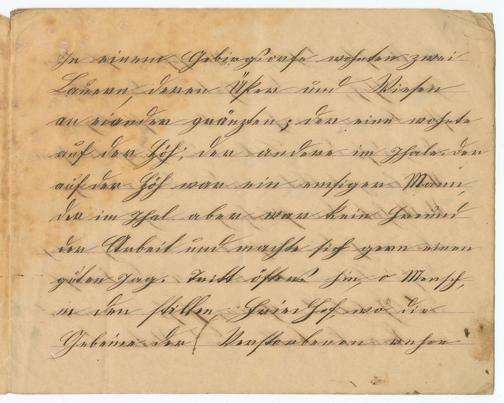 In einem Gebirgsdorfe wohnten zwei
Bauern, deren Äker und Wiesen
an einander gränzten; der eine wohnte
auf der Höh, der andere im Thale. Der
auf der Höh war ein emsiger Mann
der im Thal aber war kein Freund
der Arbeit und machte sich gern einen
guten Tag. Tritt öfters hin o Mensch,
in den stillen Friedhof wo die
Gebeine der Verstorbenen ruhen